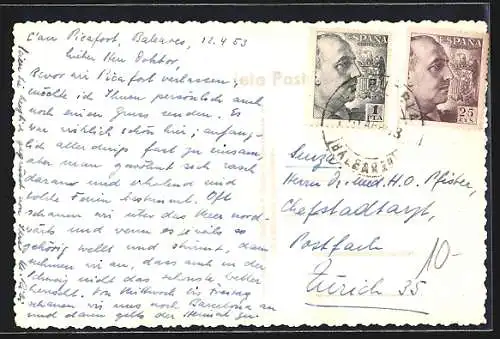 C'an Picafort, Baleares, 12.4.53
Lieber Herr Doktor,
Bevor wir Picafort verlassen,
möchte ich Ihnen persönlich auch
noch einen Gruss senden. Es
war wirklich schön hier; anfäng-
lich allerdings fast zu einsam,
aber man gewöhnt sich rasch
daran und erholend und
tolle Ferien bestimmt. Oft
schauen wir über das Meer nord-
wärts und wenn es jeweils so
gehörig wellt und stürmt, dann
nehmen wir an, dass auch in der
Schweiz nicht das schönste Wetter
herrscht. Von Mittwoch bis Freitag
schauen wir uns noch Barcelona an
und dann gehts der Heimat zu.
Tarjeta Postal
ESPAÑA
1
PTA
ESPAÑA
25
CTS
BALEARES
Suiza
Herrn Dr. med. H.O. Pfister,
Chefstadtarzt,
Postfach
Zürich 35
10-